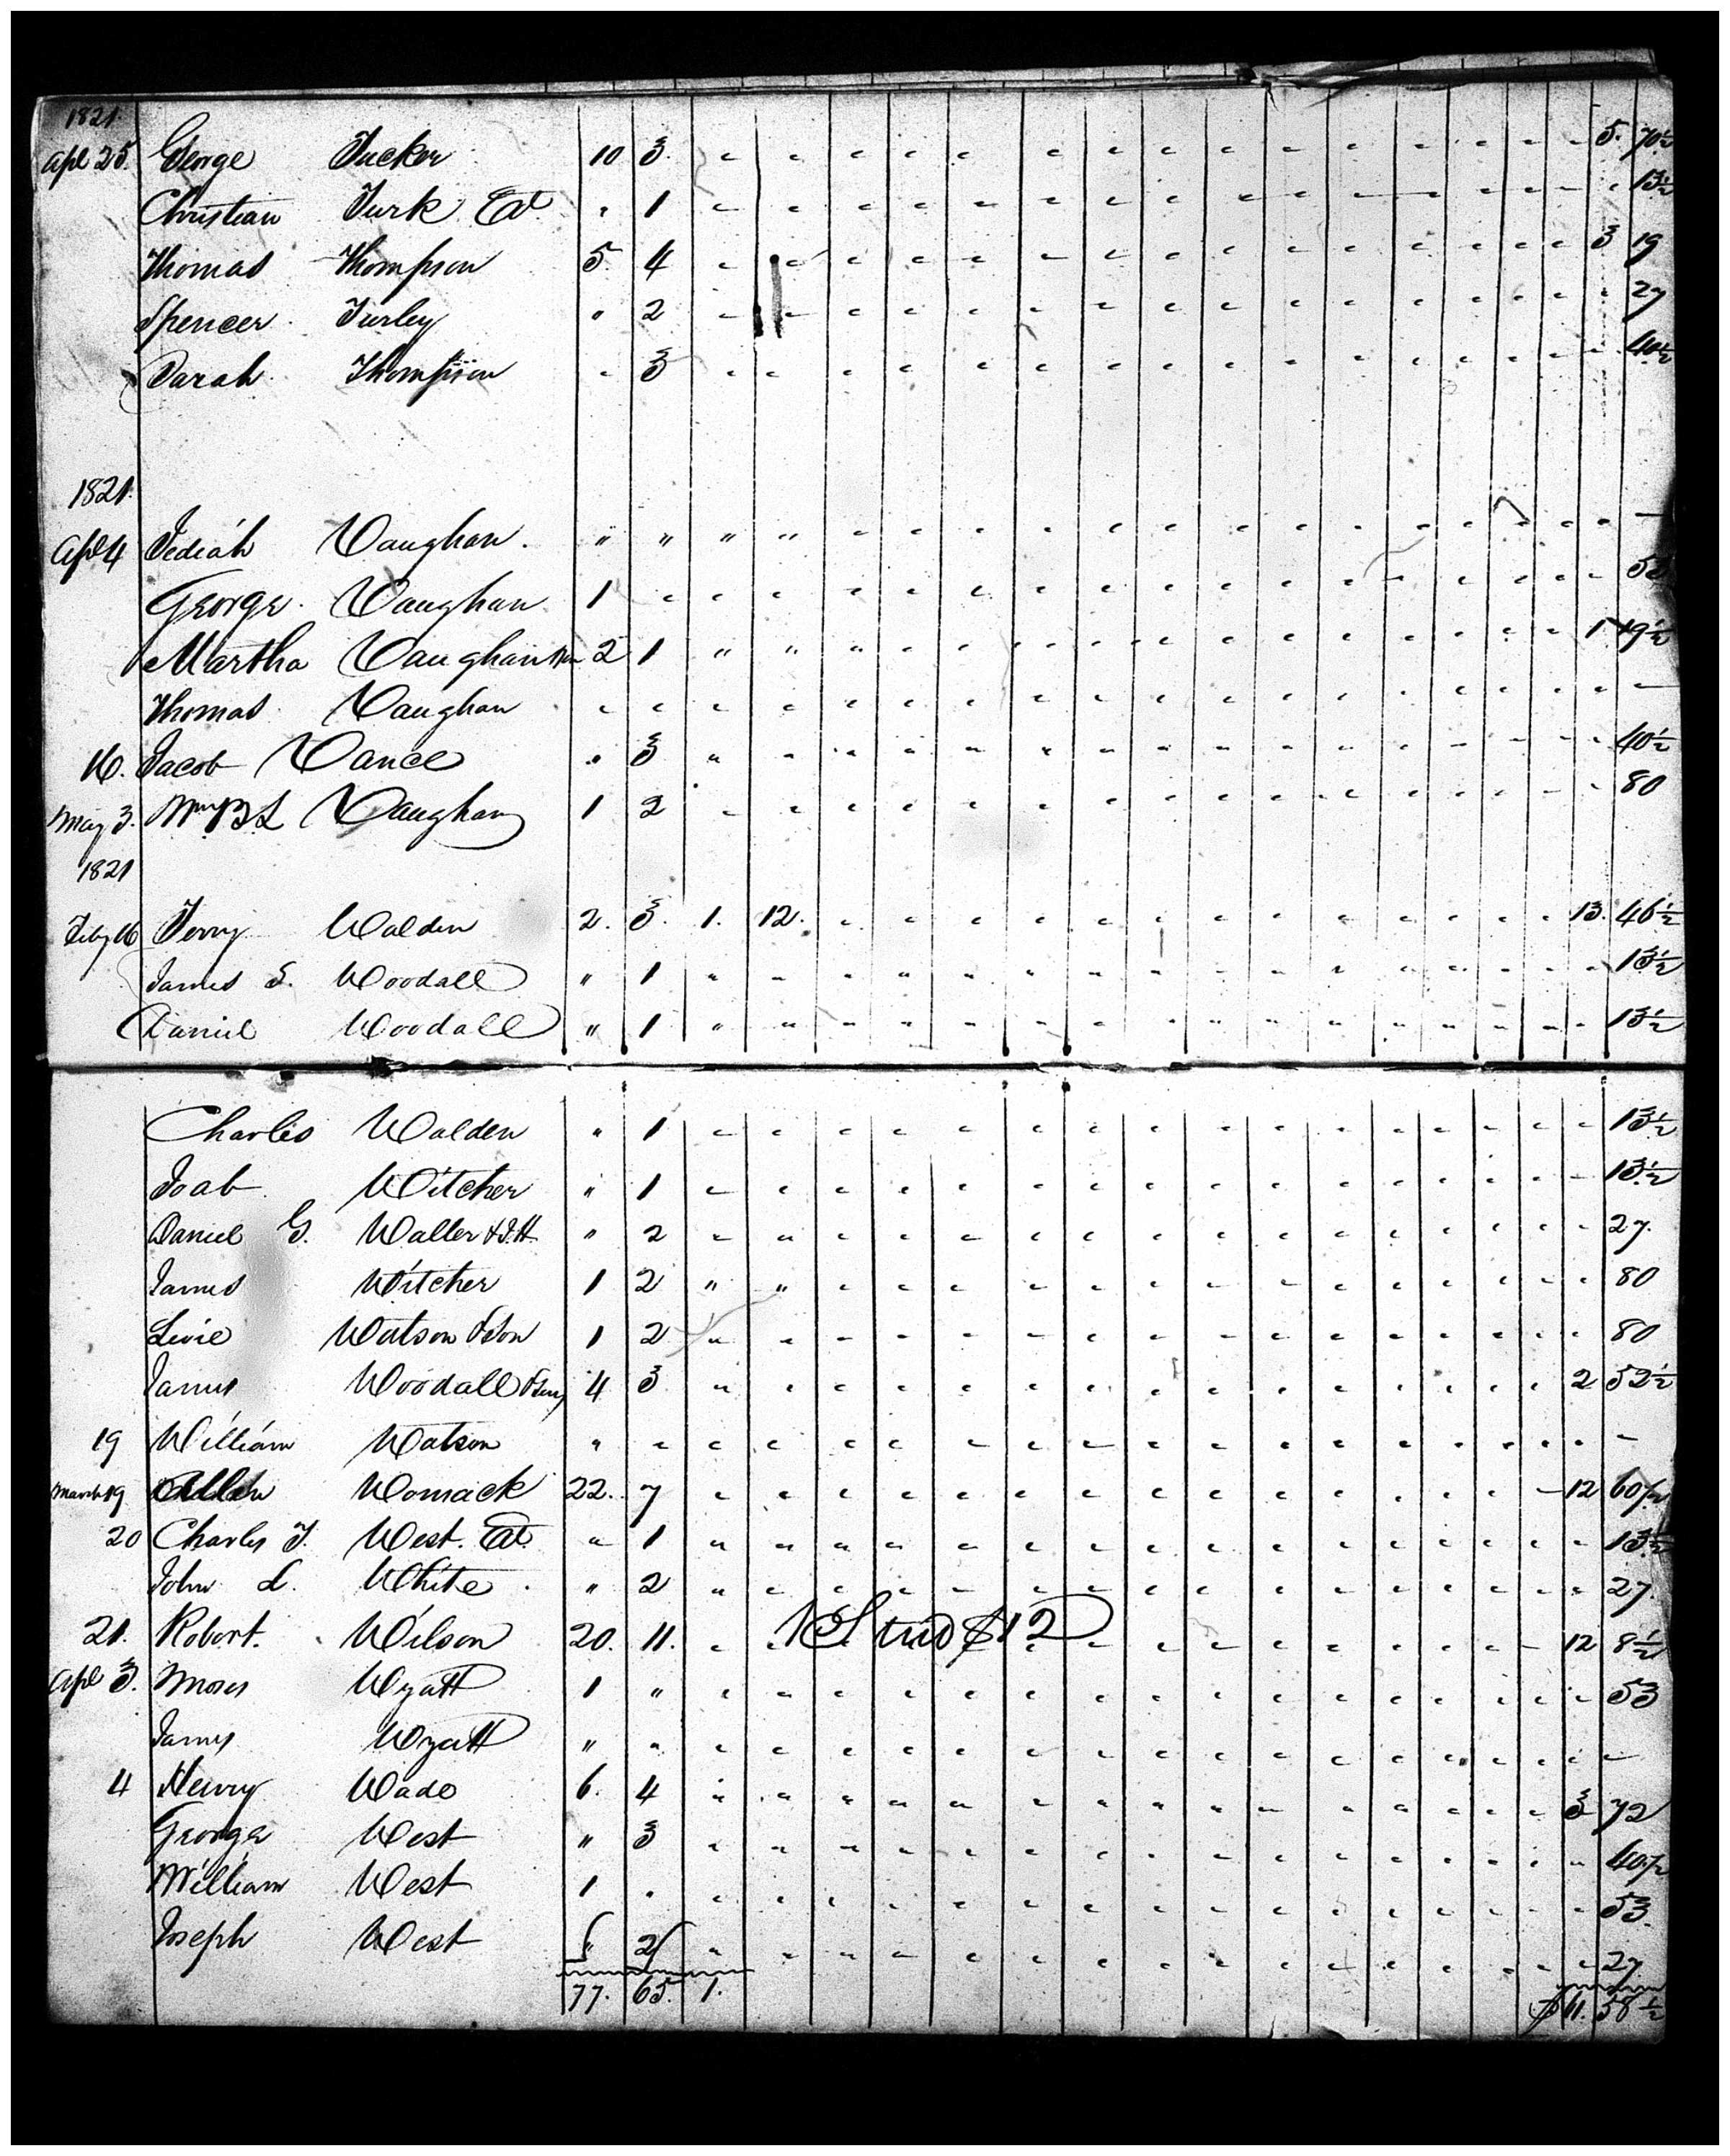 1821
Apl 25. George Tucker 10 3. 5. 70½
Christian Turk Est. " 1 13½
Thomas Thompson 5. 4 3 19
Spencer Turley " 2 27
Sarah Thompson 3 40½
1821.
Apl 4 Vaughan. " " " " —
George Vaughan 1 53
Martha Vaughan 2 1 " " " 1 19½
Thomas Vaughan —
16. Jacob Vance " 3 40½
May 3. Wm B L Vaughan 1 2 80
1821
Feby 16 Terry Walden 2. 3. 1. 12. 13. 46½
James S. Woodall " 1 13½
Daniel Woodall " 1 13½
Charles Walden " 1 13½
Joab Witcher " 1 13½
Daniel G. Waller & J.H. " 2 27.
James Witcher 1 2 " " 80
Levie Watson & Son 1 2 80
James Woodall 4 3 2 52½
19 William Watson " —
March 19 Allen Womack 22. 7 12 60½
20 Charles T. West. Est. " 1 13½
John L. White " 2 27.
21. Robert. Wilson 20. 11. 1 Stud $12 12 8½
Apl 3. Moses Wyatt 1 " 53
James Wyatt " " —
4 Henry Wade 6. 4 3 72
George West " 3 40½
William West 1 53.
Joseph West " 2 27
77. 65. 1. $61. 58½